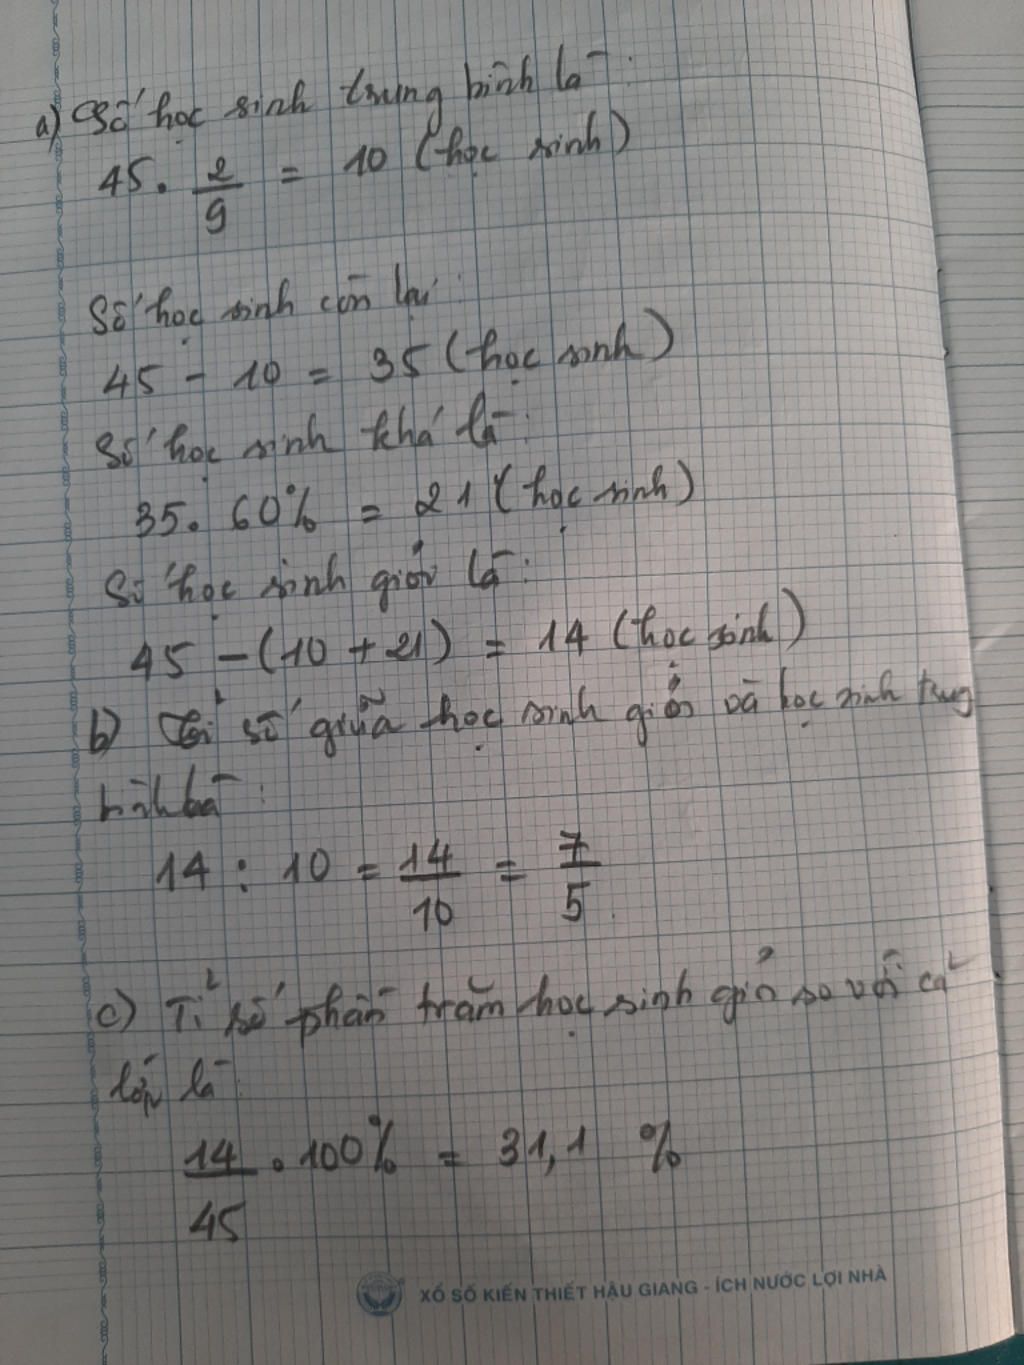 a) Số học sinh trung bình là:
45 . 2/9 = 10 (học sinh)
Số học sinh còn lại:
45 - 10 = 35 (học sinh)
Số học sinh khá là:
35 . 60% = 21 (học sinh)
Số học sinh giỏi là:
45 - (10 + 21) = 14 (học sinh)
b) Tỉ số giữa học sinh giỏi và học sinh trung
bình là:
14 : 10 = 14/10 = 7/5
c) Tỉ số phần trăm học sinh giỏi so với cả
lớp là:
14/45 . 100% = 31,1 %
XỔ SỐ KIẾN THIẾT HẬU GIANG - ÍCH NƯỚC LỢI NHÀ